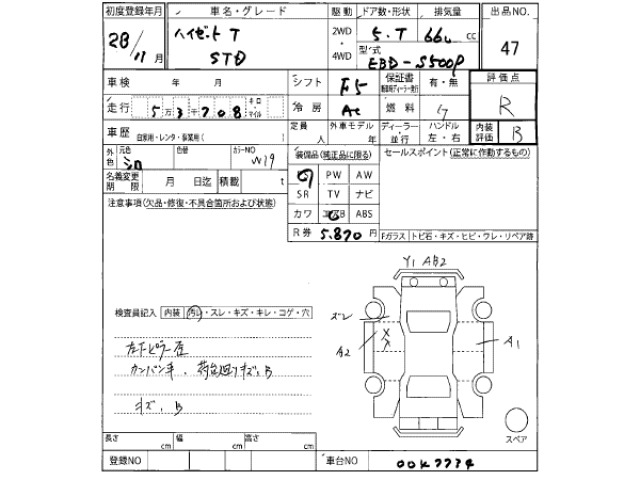 初度登録年月 車名・グレード 駆動 ドア数・形状 排気量 出品NO.
28/11月 ハイゼット T STD 2WD・4WD 5・T 66u cc 47
型式 EBD-S500P
車検 年 月 シフト F5 保証書 有・無 評価点 R
走行 5万3千708 キロ・マイル 冷房 AC 燃料
車歴 自家用・レンタ・事業用( ) 定員 人 外車モデル 年 ディーラー・並行 ハンドル 左・右 内装評価 B
外色 元色 シロ 色替 カラーNO W19 装備品(純正品に限る) セールスポイント(正常に作動するもの)
名義変更期限 月 日迄 積載 t PW AW
SR TV ナビ
注意事項(欠品・修復・不具合箇所および状態) カワ エアB ABS
R券 5.870 円 Fガラス トビ石・キズ・ヒビ・ワレ・リペア跡
Y1 AB2
検査員記入 内装 汚レ・スレ・キズ・キレ・コゲ・穴 ズレ
A2 A1
カンバン キズ、B
キズ、B
スペア
長さ cm 幅 cm 高さ cm
登録NO 車台NO 00K7774